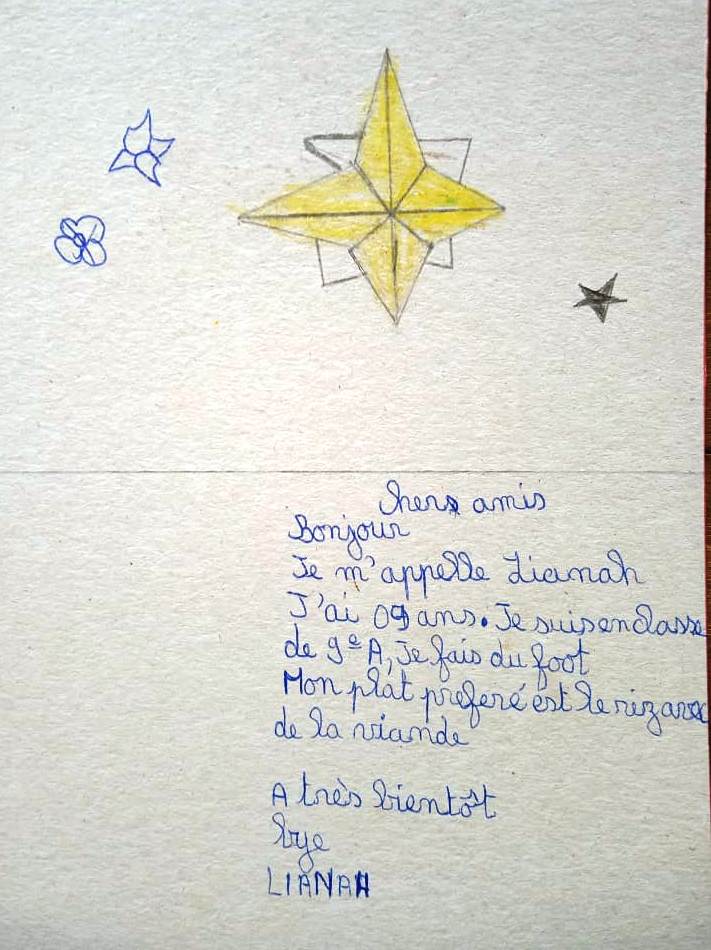 chers amis
Bonjour
Je m'appelle Lianah
J'ai 09 ans. Je suis en classe
de 9e A, Je fais du foot
Mon plât preferé est le riz avec
de la viande
A très bientôt
bye
LIANAH